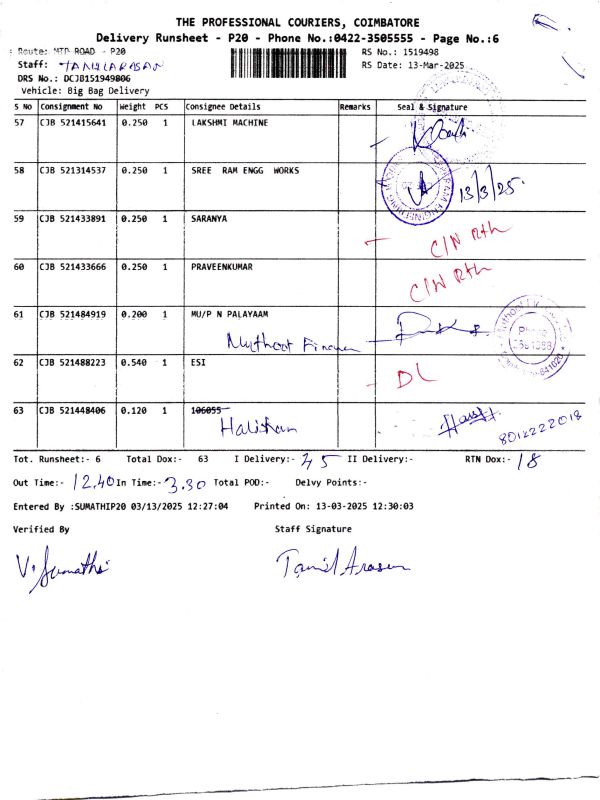 THE PROFESSIONAL COURIERS, COIMBATORE
Delivery Runsheet - P20 - Phone No.:0422-3505555 - Page No.:6
Route: MTP ROAD - P20
RS No.: 1519498
Staff: TAMILARASAN
RS Date: 13-Mar-2025
DRS No.: DCJB151949806
Vehicle: Big Bag Delivery
S No Consignment No Weight PCS Consignee Details Remarks Seal & Signature
57 CJB 521415641 0.250 1 LAKSHMI MACHINE
58 CJB 521314537 0.250 1 SREE RAM ENGG WORKS 13/3/25.
59 CJB 521433891 0.250 1 SARANYA C/N Rth
60 CJB 521433666 0.250 1 PRAVEENKUMAR C/N Rth
61 CJB 521484919 0.200 1 MU/P N PALAYAAM
Muthoot Finance
62 CJB 521488223 0.540 1 ESI DL
63 CJB 521448406 0.120 1 106055
8012222018
Tot. Runsheet:- 6 Total Dox:- 63 I Delivery:- 45 II Delivery:- RTN Dox:- 18
Out Time:- 12.40 In Time:- 3.30 Total POD:- Delvy Points:-
Entered By :SUMATHIP20 03/13/2025 12:27:04 Printed On: 13-03-2025 12:30:03
Verified By Staff Signature
V. Sumathi Tamil Arasan